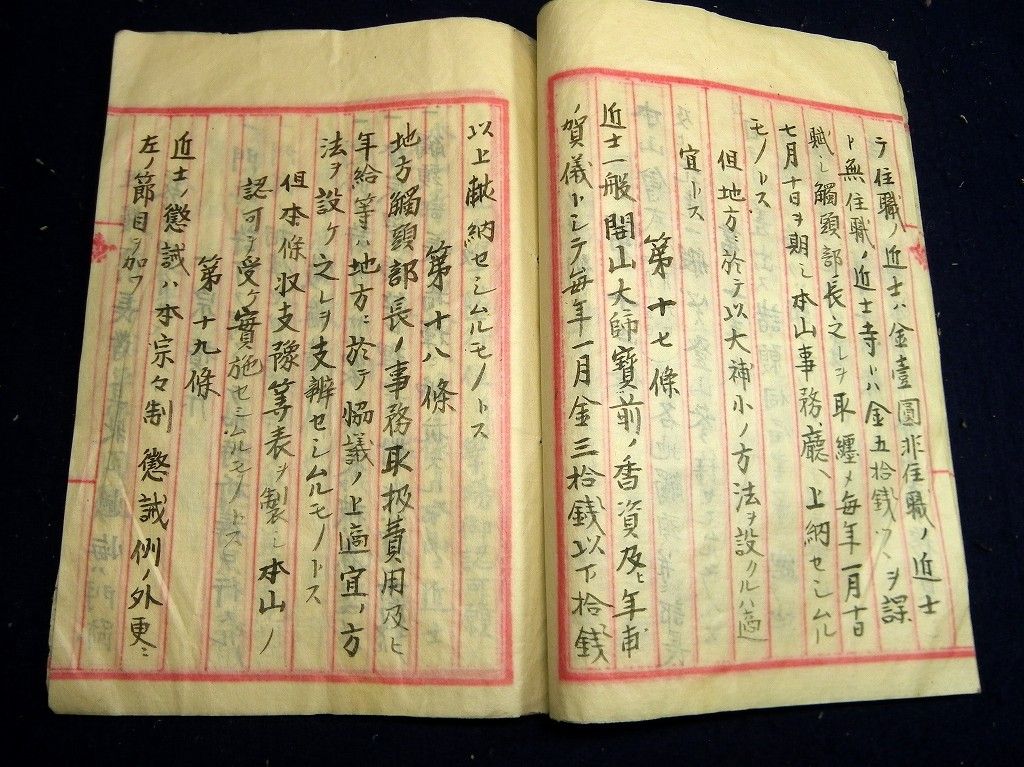 ラ住職ノ近士ハ金壹圓非住職ノ近士
ト無住職ノ近士寺トハ金五拾銭ツヽヲ課
賦シ觸頭部長之レヲ取纏メ毎年一月十日
七月十日ヲ期シ本山事務廳ヘ上納セシムル
モノトス
但地方ニ於テ以大補小ノ方法ヲ設クルハ適
宜トス
第十七條
近士一般開山大師寶前ノ香資及ヒ年甫
賀儀トシテ毎年一月金三拾銭以下拾銭
以上献納セシムルモノトス
第十八條
地方觸頭部長ノ事務取扱費用及ヒ
年給等ハ地方ニ於テ協議ノ上適宜ノ方
法ヲ設ケ之レヲ支辨セシムルモノトス
但本條収支豫算表ヲ製シ本山ノ
認可ヲ受ケ實施セシムルモノトス
第十九條
近士ノ懲誡ハ本宗々制懲誡例ノ外更ニ
左ノ節目ヲ加フ